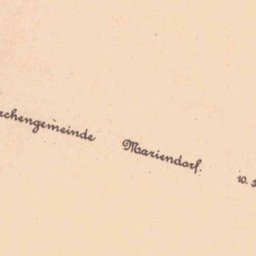 achengemeinde Mariendorf. 10.